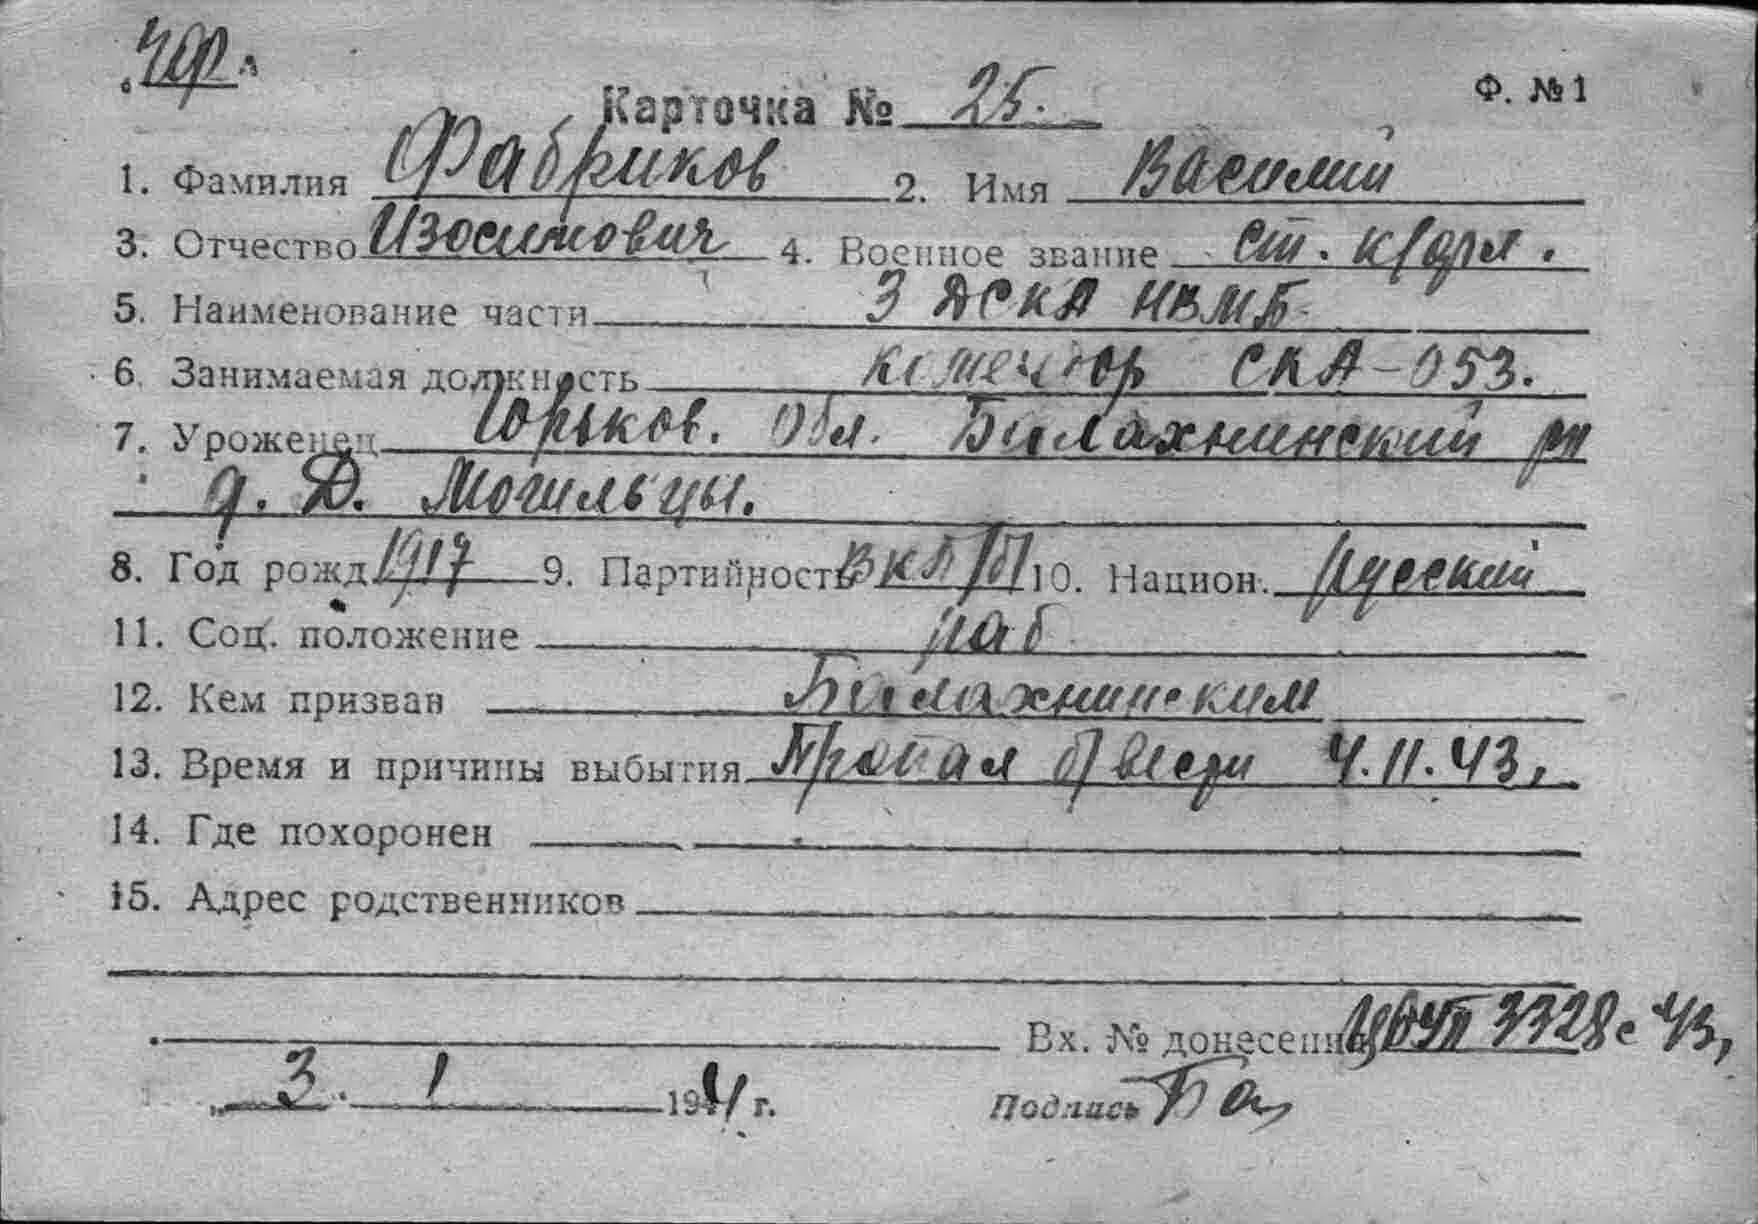 ЧФ.
Ф. №1
Карточка № 25.
1. Фамилия Фабриков 2. Имя Василий
3. Отчество Изосимович 4. Военное звание ст. к/фл.
5. Наименование части 3 ДСКА НВМБ
6. Занимаемая должность комендор СКА-053.
7. Уроженец Горьков. Обл. Балахнинский рн
д. Д. Могильцы.
8. Год рожд 1917 9. Партийность ВКП/б/ 10. Национ. русский
11. Соц. положение раб
12. Кем призван Балахнинским
13. Время и причины выбытия Пропал б/вести 4.11.43,
14. Где похоронен
15. Адрес родственников
Вх. № донесения 3328с 43,
„ 3. 1 1944 г. Подпись